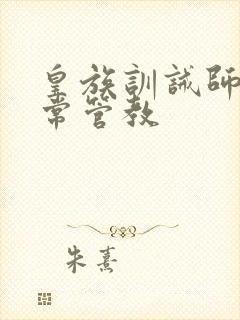 皇族訓誡師
常管教
朱熹